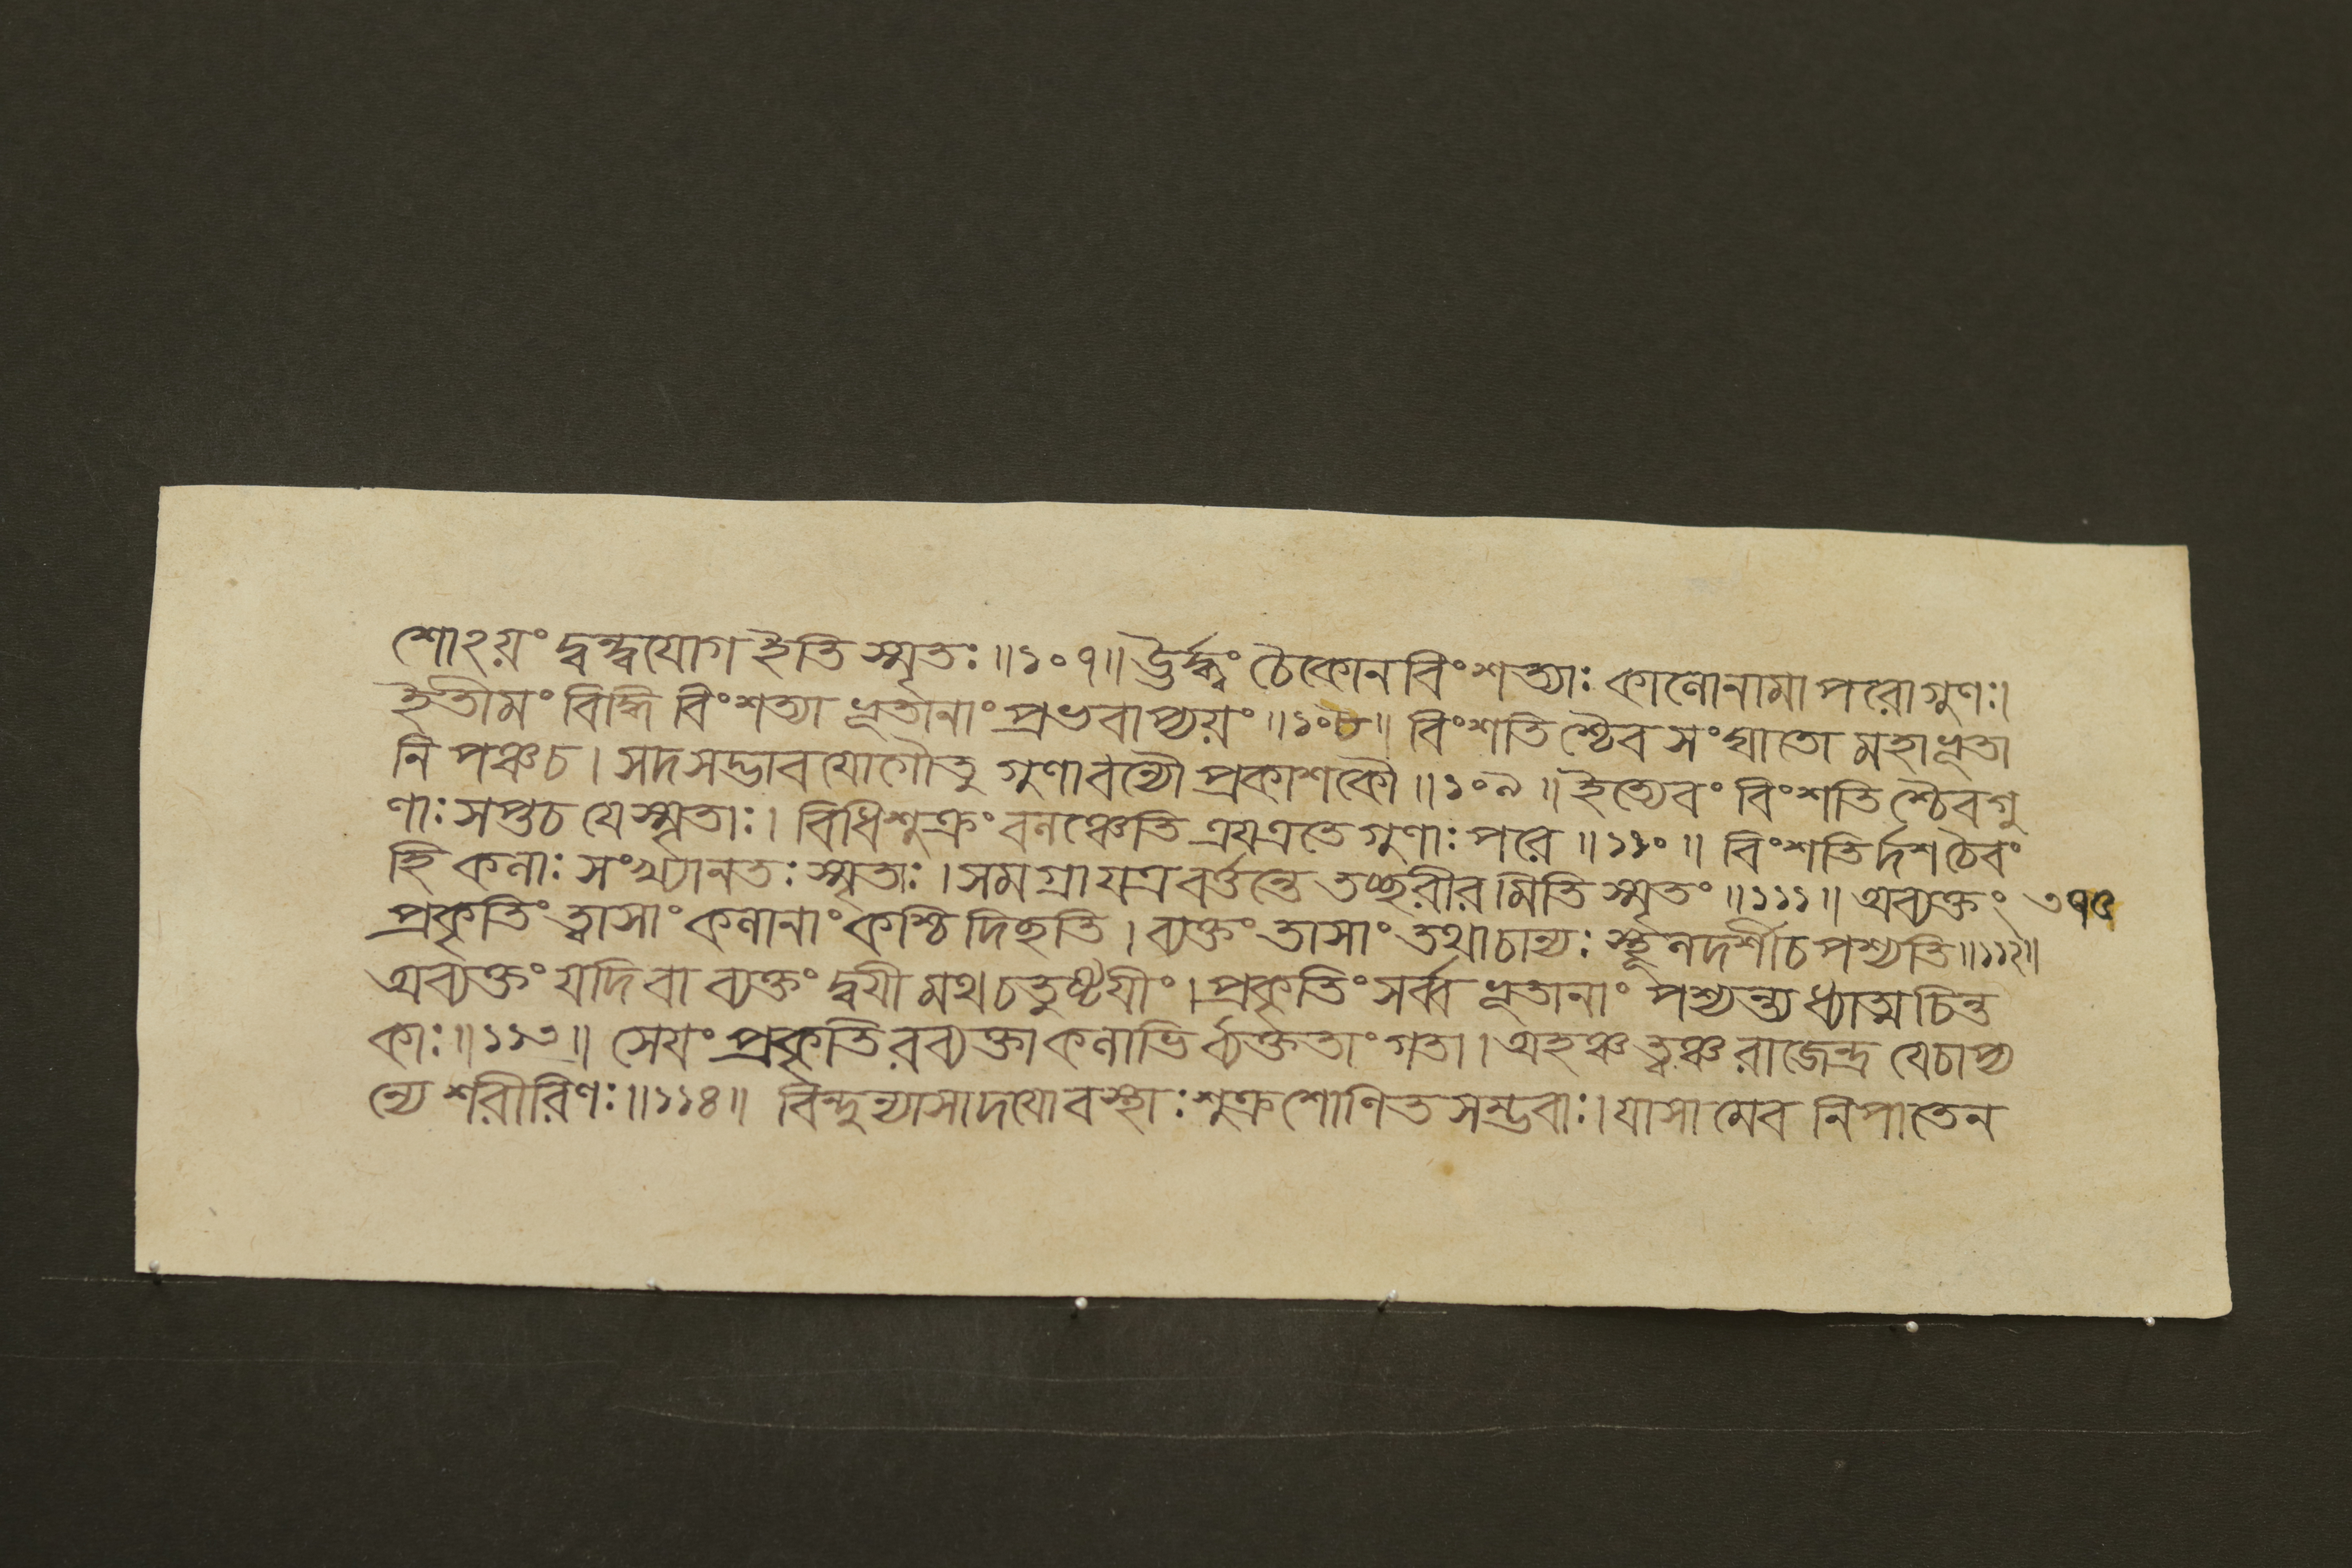 শোঽয়ং দ্বন্দ্বযোগ ইতি স্মৃতঃ ॥ ১০৭ ॥ ঊর্দ্ধ্বং চৈকোনবিংশত্যাঃ কালোনামাপরোগুণঃ।
ইতীমং বিদ্ধি বিংশত্যা ভূতানাং প্রভবাপ্যয়ং ॥ ১০৮ ॥ বিংশতিশ্চৈব সংঘাতো মহাভূতা
নি পঞ্চ চ । সদসদ্ভাবযোগৌতু গুণাবন্যৌ প্রকাশকৌ ॥ ১০৯ ॥ ইত্যেবং বিংশতিশ্চৈব গু
ণাঃ সপ্তচ যে স্মৃতাঃ । বিধিশুক্রং বলঞ্চেতি ত্রয এতে গুণাঃ পরে ॥ ১১০ ॥ বিংশতির্দশচৈবং
হি কলাঃ সংখ্যানতঃ স্মৃতাঃ । সমগ্রা যত্র বর্ত্তন্তে তচ্ছরীরমিতি স্মৃতং ॥ ১১১ ॥ অব্যক্তং ৩৭৫
প্রকৃতিং ত্বাসাং কলানাং কশ্চিদিছতি । ব্যক্তং তাসাং তথাচান্যঃ স্থূলদর্শীচ পশ্যতি ॥ ১১২ ॥
অব্যক্তং যদি বা ব্যক্তং দ্বযীমথ চতুষ্টযীং । প্রকৃতিং সর্ব্ব ভূতানাং পশ্যন্ত্যধ্যাত্ম চিন্ত
কাঃ ॥ ১১৩ ॥ সেযং প্রকৃতিরব্যক্তা কলাভির্ব্যক্ততাং গতা । অহঞ্চ ত্বঞ্চ রাজেন্দ্র যেচাপ্য
ন্যে শরীরিণঃ ॥ ১১৪ ॥ বিন্দুন্যাসাদযোবস্থাঃ শুক্রশোণিত সম্ভবাঃ । যাসামেব নিপাতেন